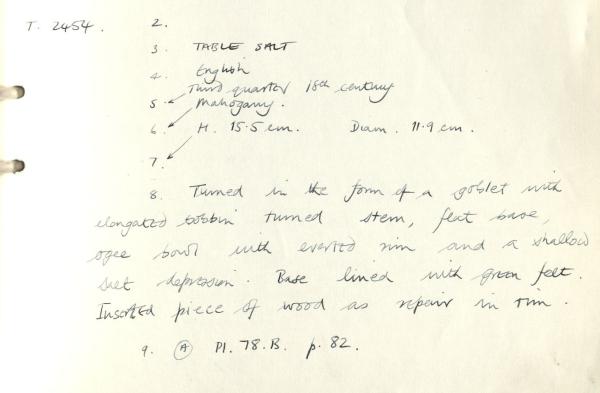 T. 2454.
2.
3. TABLE SALT
4. English
Third quarter 18th century
5. Mahogany.
6. H. 15.5 cm. Diam. 11.9 cm.
7.
8. Turned in the form of a goblet with
elongated bobbin turned stem, flat base,
ogee bowl with everted rim and a shallow
salt depression. Base lined with green felt.
Inserted piece of wood as repair in rim.
9. (A) Pl. 78.B. p. 82.